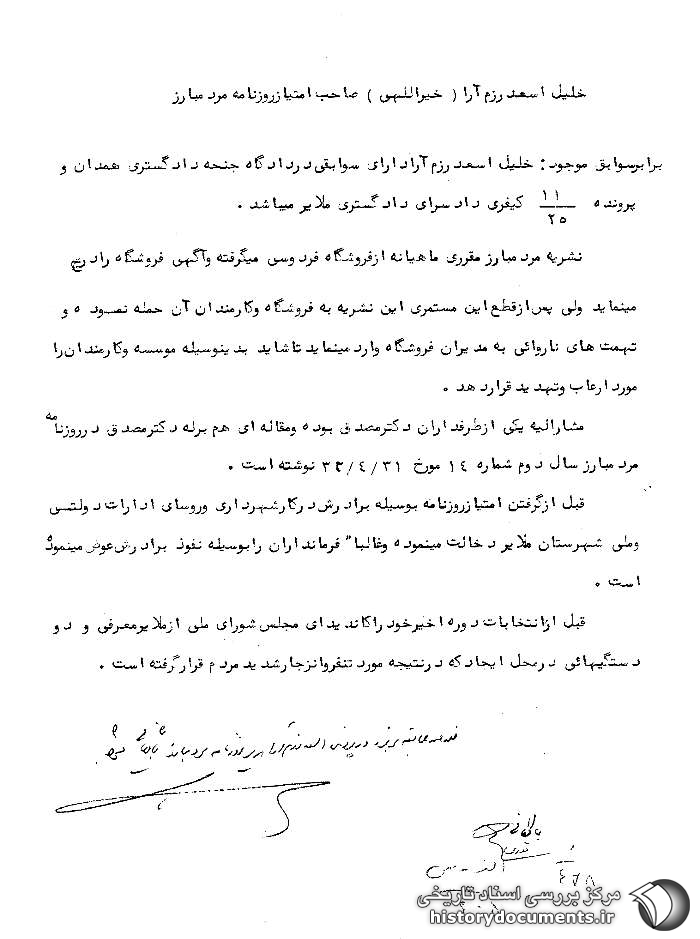 خلیل اسعد رزم آرا ( خیراللهی ) صاحب امتیاز روزنامه مرد مبارز
برابر سوابق موجود : خلیل اسعد رزم آرا دارای سوابقی در دادگاه جنحه دادگستری همدان و
پرونده ۱۱/۲۵ کیفری دادسرای دادگستری ملایر میباشد .
نشریه مرد مبارز مقرری ماهیانه از فروشگاه فردوسی میگرفته و آگهی فروشگاه را درج
مینماید ولی پس از قطع این مستمری این نشریه به فروشگاه و کارمندان آن حمله نموده و
تهمت های ناروائی به مدیران فروشگاه وارد مینماید تا شاید بدینوسیله موسسه و کارمندان را
مورد ارعاب و تهدید قرار دهد .
مشارالیه یکی از طرفداران دکتر مصدق بوده و مقاله ای هم برله دکتر مصدق در روزنامه
مرد مبارز سال دوم شماره ۱٤ مورخ ۳۲/٤/۳۱ نوشته است .
قبل از گرفتن امتیاز روزنامه بوسیله برادرش در کار شهرداری و روسای ادارات دولتی
و ملی شهرستان ملایر دخالت مینموده و غالبا" فرمانداران را بوسیله نفوذ برادرش عوض مینموده
است .
قبل از انتخابات دوره اخیر خود را کاندیدای مجلس شورای ملی از ملایر معرفی و دو
دستگیهائی در محل ایجاد که در نتیجه مورد تنفر و انزجار شدید مردم قرار گرفته است .
مرکز بررسی اسناد تاریخی
historydocuments.ir